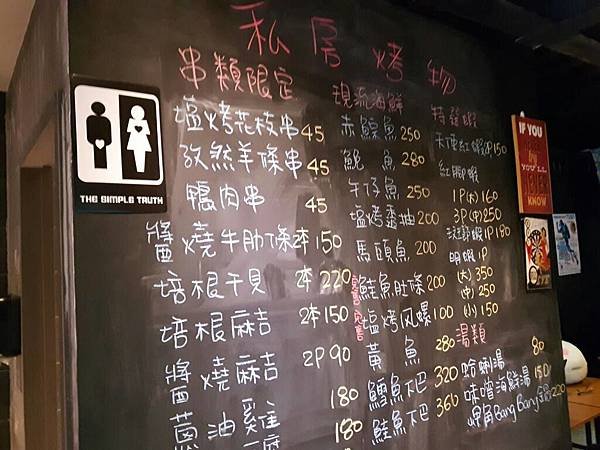 私房烤物
串類限定
塩烤花枝串 45
孜然羊條串 45
鴨肉串 45
醬燒牛肋條 2本 150
培根干貝 2本 220
培根麻吉 2本 150
醬燒麻吉 2P 90
蔥油雞 180
180
現流海鮮
赤鯮魚 250
鮸魚 280
午仔魚 250
塩烤透抽 200
馬頭魚 200
鮭魚肚條 200
塩烤风螺 100
黃魚 280
鱈魚下巴 320
鮭魚下巴 360
特選蝦
天使紅蝦 1P 150
紅腳蝦
1P(大) 160
3P(中) 250
1P 180
明蝦 1P
(大) 350
(中) 250
(小) 150
湯類
蛤蜊湯 80
味噌海鮮湯 150
呷角Bang Bang鍋 220
THE SIMPLE TRUTH
IF YOU
YOU'LL
NEVER
KNOW